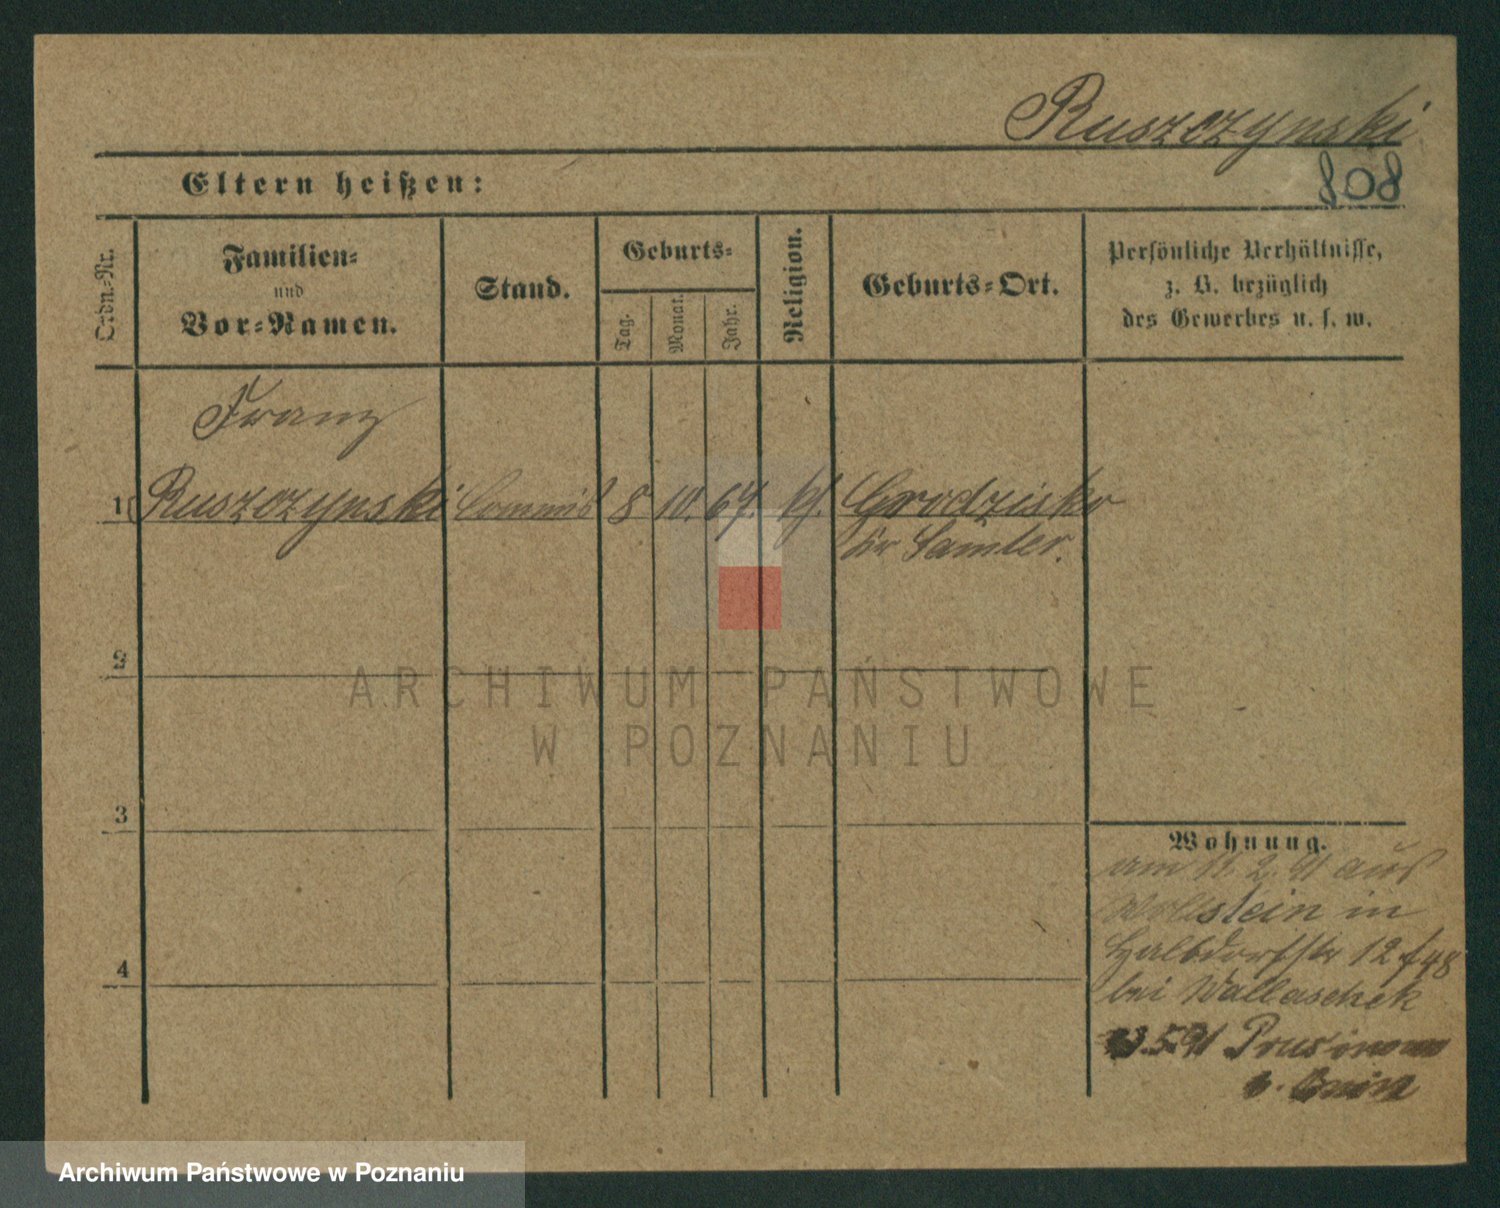 Ruszczynski
808
Eltern heißen:
Ordn.-Nr.
Familien-
und
Vor-Namen.
Stand.
Geburts-
Tag.
Monat.
Jahr.
Religion.
Geburts-Ort.
Persönliche Verhältnisse,
z. B. bezüglich
des Gewerbes u. s. w.
Franz
1 Ruszczynski Commis 8 10. 67. kf. Grodzisko
Kr Samter.
2
3
4
ARCHIWUM PAŃSTWOWE
W POZNANIU
Wohnung.
am 11. 2. 91 aus
Wollstein in
Halbdorfstr 12
bei Wallaschek
5. 91
Archiwum Państwowe w Poznaniu